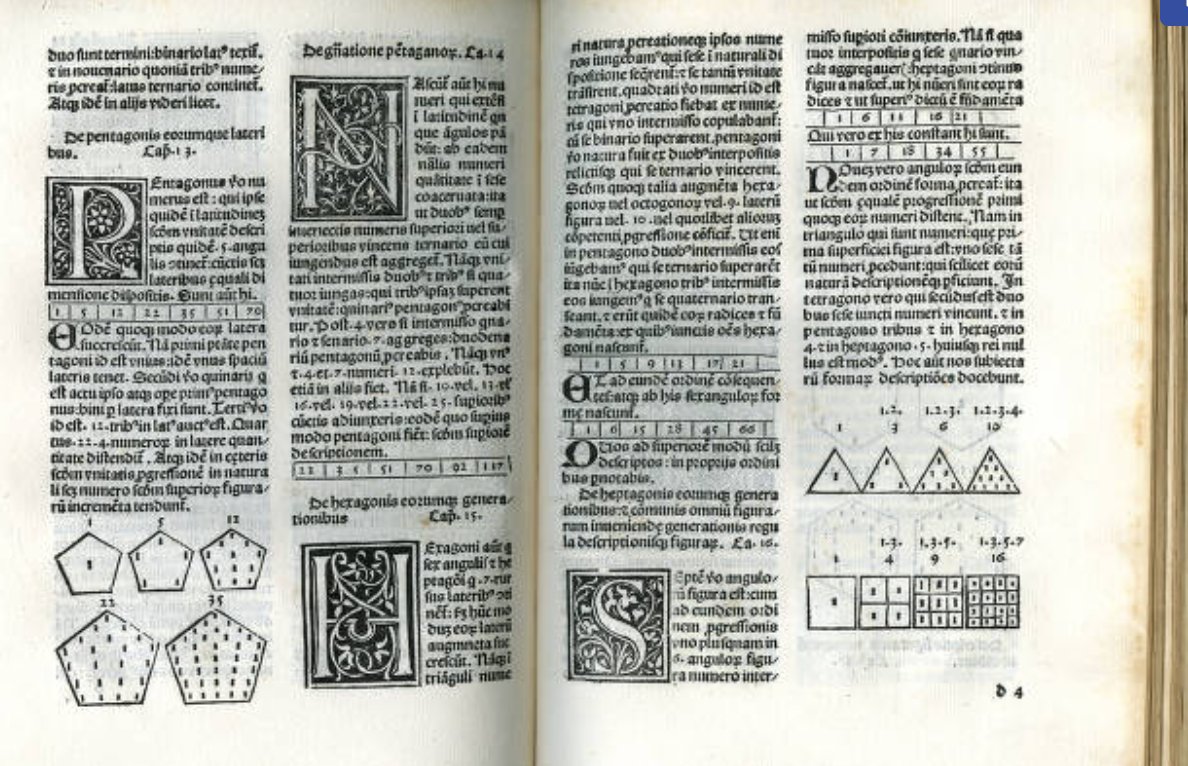 duo sunt termini: binario latꝰ texit̃.
⁊ in nouenario quoniã tribꝰ nume/
ris pereat̃: latus ternario continet̃.
Atqꝫ idẽ in alijs videri licet.
De pentagonis eorumque lateri
bus. Cap̃. 13.
PEntagonus ꝟo nu
merus est: qui ipse
quidẽ ĩ latitudinẽ
scðm vnitatẽ descri
ptis quidẽ .5. angu
lis ↄtinet̃: cũctis scꝫ
lateribus ęquali di
mensione dispositis. Sunt aũt hi.
1 | 5 | 12 | 22 | 35 | 51 | 70
EOdẽ quoqꝫ modo eoꝝ latera
succrescũt. Nã primi ptãte pen
tagoni id est vnius: idẽ vnus spaciũ
lateris tenet. Secũdi ꝟo quinarij q
est actu ipso atqꝫ ope primꝰ pentago
nus: bini ꝑ latera fixi sunt. Tertij ꝟo
id est .12. tribꝰ in latꝰ auctꝰ est. Quar
tus .22. 4. numeroꝝ in latere quan/
titate distendit̃. Atqꝫ idẽ in cęteris
scðm vnitatis ꝓgressionẽ in natura
li scꝫ numero scðm superioꝝ figura/
rũ incremẽta tendunt̃.
1 5 12
22 35
De gñatione pẽtagonoꝝ. Ca. 14
NAscũt̃ aũt hi nu
meri qui extẽsi
ĩ latitudinẽ qn
que ãgulos pã
dũt: ab eadem
nãlis numeri
quãtitate ĩ sese
coaceruata: ita
ut duobꝰ semp̃
interiectis numeris superiori uel su/
perioribus vincens ternario eũ cui
iungendus est aggreget̃. Nãqꝫ vni/
tati intermissis duobꝰ ⁊ tribꝰ si qua/
tuor iungas: qui tribꝰ ipsaꝫ superent
vnitatẽ: quinariꝰ pentagonꝰ pcreabi
tur. Post .4. vero si intermisso qna/
rio ⁊ senario .7. aggreges: duodena
riũ pentagonũ ꝓcreabis. Nãqꝫ vnꝰ
⁊ .4. et .7. numeri .12. explebũt. Hoc
etiã in alijs fiet. Nã si .10. vel .13. vel
16. vel .19. vel .22. vel .25. superioribꝰ
cũctis adiunxeris: eodẽ quo supius
modo pentagoni fiẽt: scðm supiorẽ
descriptionem.
22 | 35 | 51 | 70 | 92 | 117
De hexagonis eorumqꝫ genera/
tionibus Cap̃. 15.
HExagoni aũt q
sex angulis ⁊ he
ptagõi q .7. rur
sus lateribꝰ ↄti
nẽt̃: sꝫ hũc mo
duꝫ eoꝝ laterũ
augmneta suc
crescũt. Nãqꝫ ĩ
triãguli nume
ri natura pcreationeqꝫ ipsos nume
ros iungebamꝰ qui sese ĩ naturali di
spositione seq̃rent̃: ⁊ se tantũ vnitate
trãsirent. quadrati ꝟo numeri id est
tetragoni ꝓcreatio fiebat ex nume/
ris qui vno intermisso copulabant̃:
cũ se binario superarent. pentagoni
ꝟo natura fuit ex duobꝰ interpositis
relictisqꝫ qui se ternario vincerent.
Scðm quoqꝫ talia augmẽta hexa/
gonoꝝ uel octogonoꝝ vel .9. laterũ
figura uel .10. uel quotlibet alioruꝫ
cõpetenti ꝓgressione cõficit̃. Ut eni
in pentagono duobꝰ intermissis eos
iũgebamꝰ qui se ternario superarẽt
ita nũc ĩ hexagono tribꝰ intermissis
eos iungemꝰ q se quaternario tran/
seant. ⁊ erũt quidẽ eoꝝ radices ⁊ fũ
damẽta: ex quibꝰ iunctis oẽs hexa/
goni nascunt̃.
1 | 5 | 9 | 13 | 17 | 21
ET ad eundẽ ordinẽ cõsequen/
tes: atqꝫ ab his sexanguloꝝ for
mę nascunt̃.
1 | 6 | 15 | 28 | 45 | 66
QUos ad superiorẽ modũ scilꝫ
descriptos: in proprijs ordini
bus pnotabis.
De heptagonis eorumqꝫ genera
tionibus: ⁊ cõmunis omniũ figura/
rum inueniendę generationis regu
la descriptionisqꝫ figuraꝝ. Ca. 16.
SEptẽ ꝟo angulo/
rũ figura est: cum
ad eundem ordi
nem ꝓgressionis
vno plusquam in
6. anguloꝝ figu/
ra numero inter/
misso supiori cõiunxeris. Nã si qua
tuor interpositis q sese qnario vin/
cãt aggregauer̃: heptagoni ↄtinuo
figura nascet̃. ut hi nũeri sint eoꝝ ra
dices ⁊ ut superiꝰ dictũ ẽ fũdamẽta
1 | 6 | 11 | 16 | 21
Qui vero ex his constant hi sunt.
1 | 7 | 18 | 34 | 55
NOueꝫ vero anguloꝝ scðm eun
dem ordinẽ forma pcreat̃: ita
ut scðm ęqualẽ progressionẽ primi
quoqꝫ eoꝝ numeri distent. Nam in
triangulo qui sunt numeri: que pri/
ma superficiei figura est: vno sese tã
tũ numeri pcedunt: qui scilicet eorũ
naturã descriptionẽqꝫ pficiunt. In
tetragono vero qui secũdus est duo
bus sese iuncti numeri vincunt. ⁊ in
pentagono tribus ⁊ in hexagono
4. ⁊ in heptagono .5. huiusqꝫ rei nul
lus est modꝰ. Hoc aũt nos subiecta
rũ formaꝝ descriptiões docebunt.
1.2. 1.2.3. 1.2.3.4.
1 3 6 10
1.3. 1.3.5. 1.3.5.7
1 4 9 16
d 4